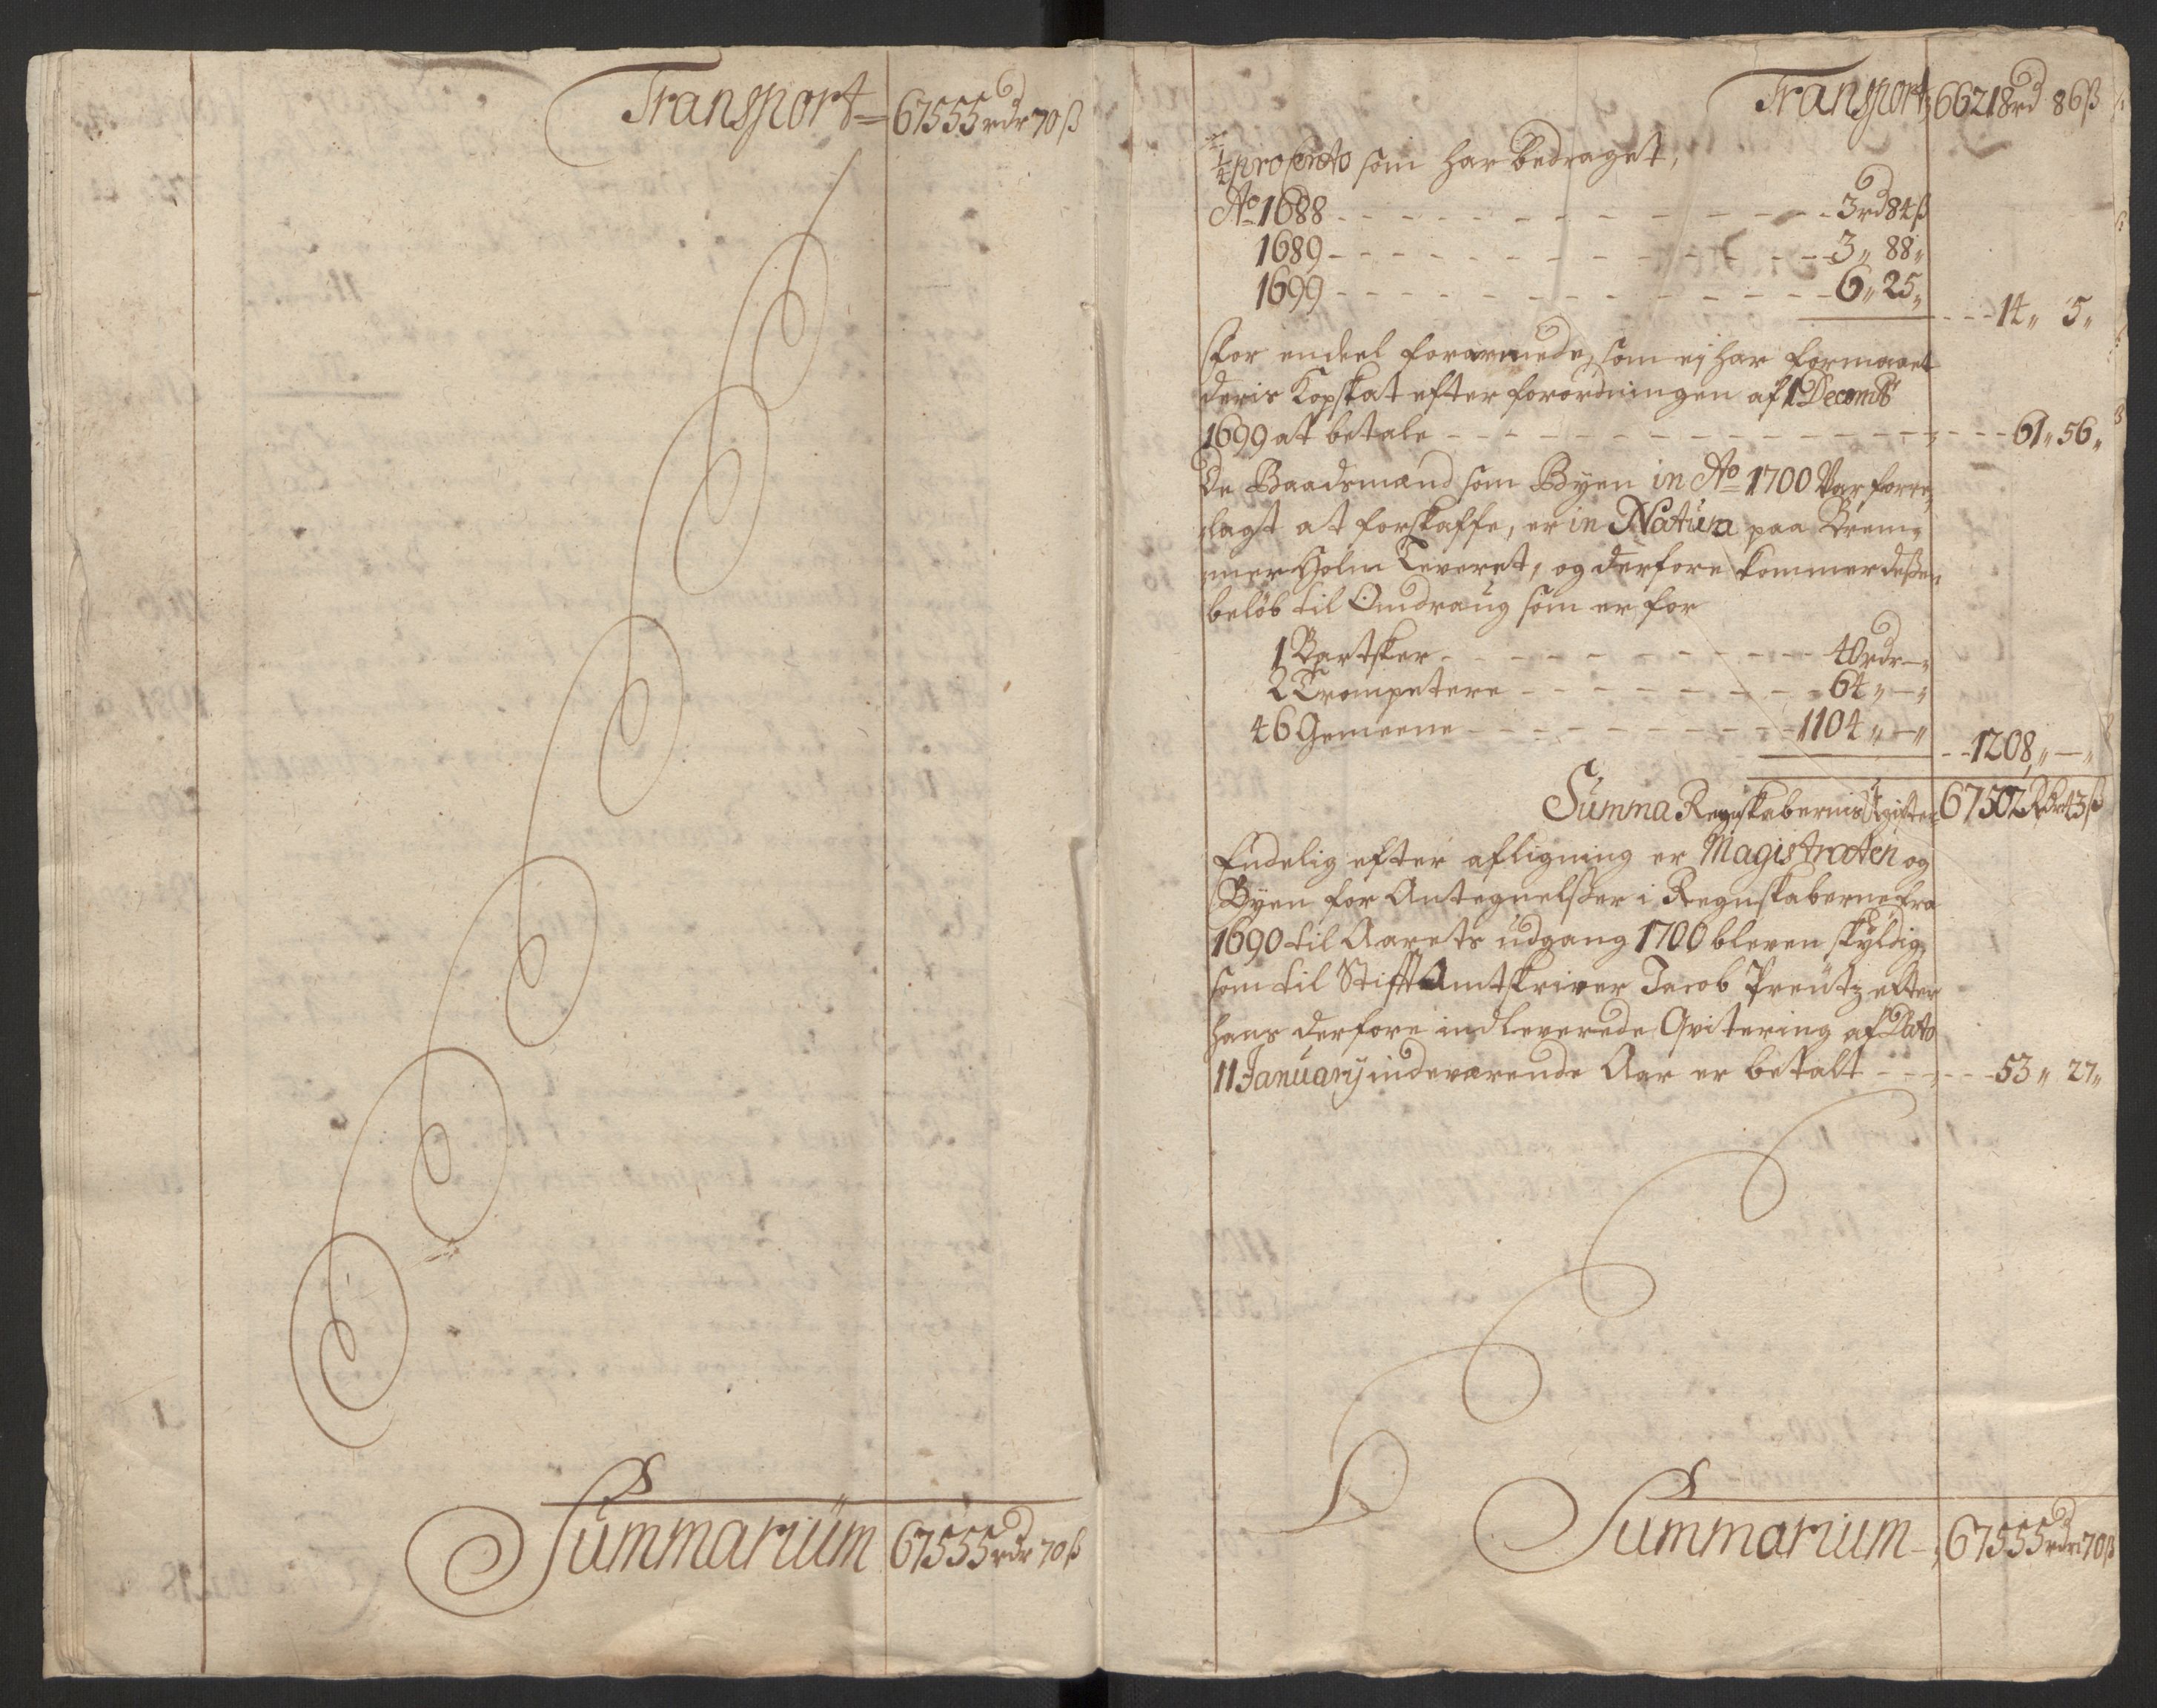 Transport = 67555 rdr 70 ß
Summarium 67555 rdr 70 ß
Transport 66218 rd 86 ß
1/4 pro Cento som har bedraget,
Ao 1688 - - - 3 rd 84 ß
1689 - - - 3 " 88 "
1699 - - - 6 " 25 "
- - - 14 " 5 "
for endeel forarmede, som ej har formaaet
deris Kopskat efter forordningen af 1 Decemb
1699 at betale - - - 61 " 56 "
De Baadsmænd som Byen in Ao 1700 Var fore,
lagt at forskaffe, er in Natura paa Brem,
mer Holm Leveret, og derfore kommer deßen
beløb til Omdraug som er for
1 Bartsker - - - 40 rdr - "
2 Trompetere - - - 64 " - "
46 Gemeene - - - 1104 " - "
- - 1208 " - "
Summa Regnskabernis Udgifter 67502 Rdr 43 ß
Endelig efter afligning er Magistraten og
Byen for Antegnelßer i Regnskaberne fra
1690 til Aarets udgang 1700 bleven skyldig
som til Stifft Amtskriver Jacob Preutz efter
hans derfore indleverede Qvitering af Dato
11 January indeværende Aar er betalt - - - 53 " 27 "
Summarium 67555 rdr 70 ß